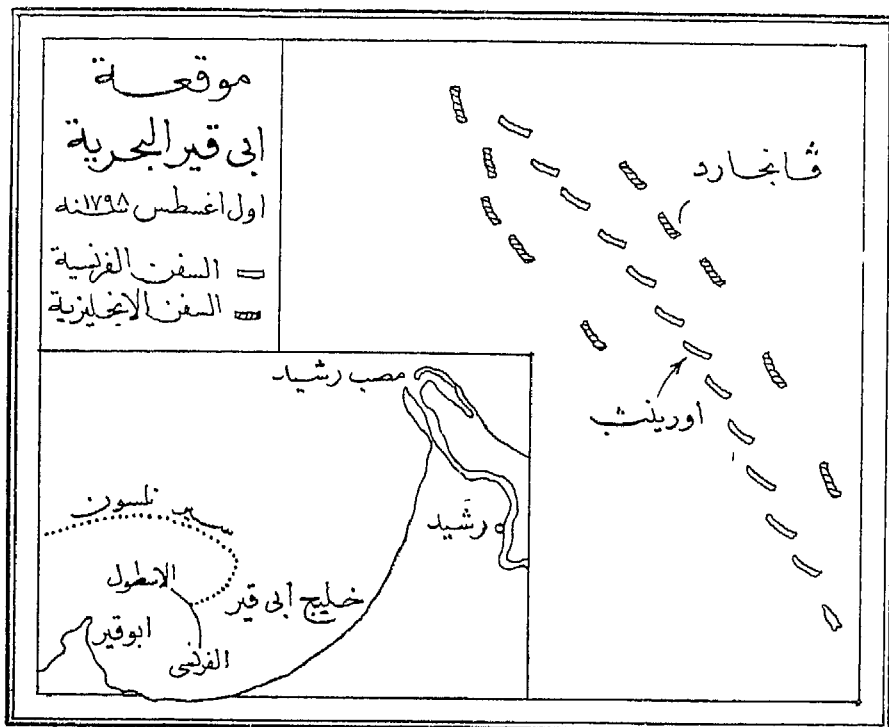 موقعة
ابى قير البحرية
اول اغسطس سنة ١٧٩٨
السفن الفرنسية
السفن الإنجليزية
ڤانجارد
اورينت
مصب رشيد
رشيد
سير نلسون
الاسطول
الفرنسى
خليج أبى قير
ابوقير